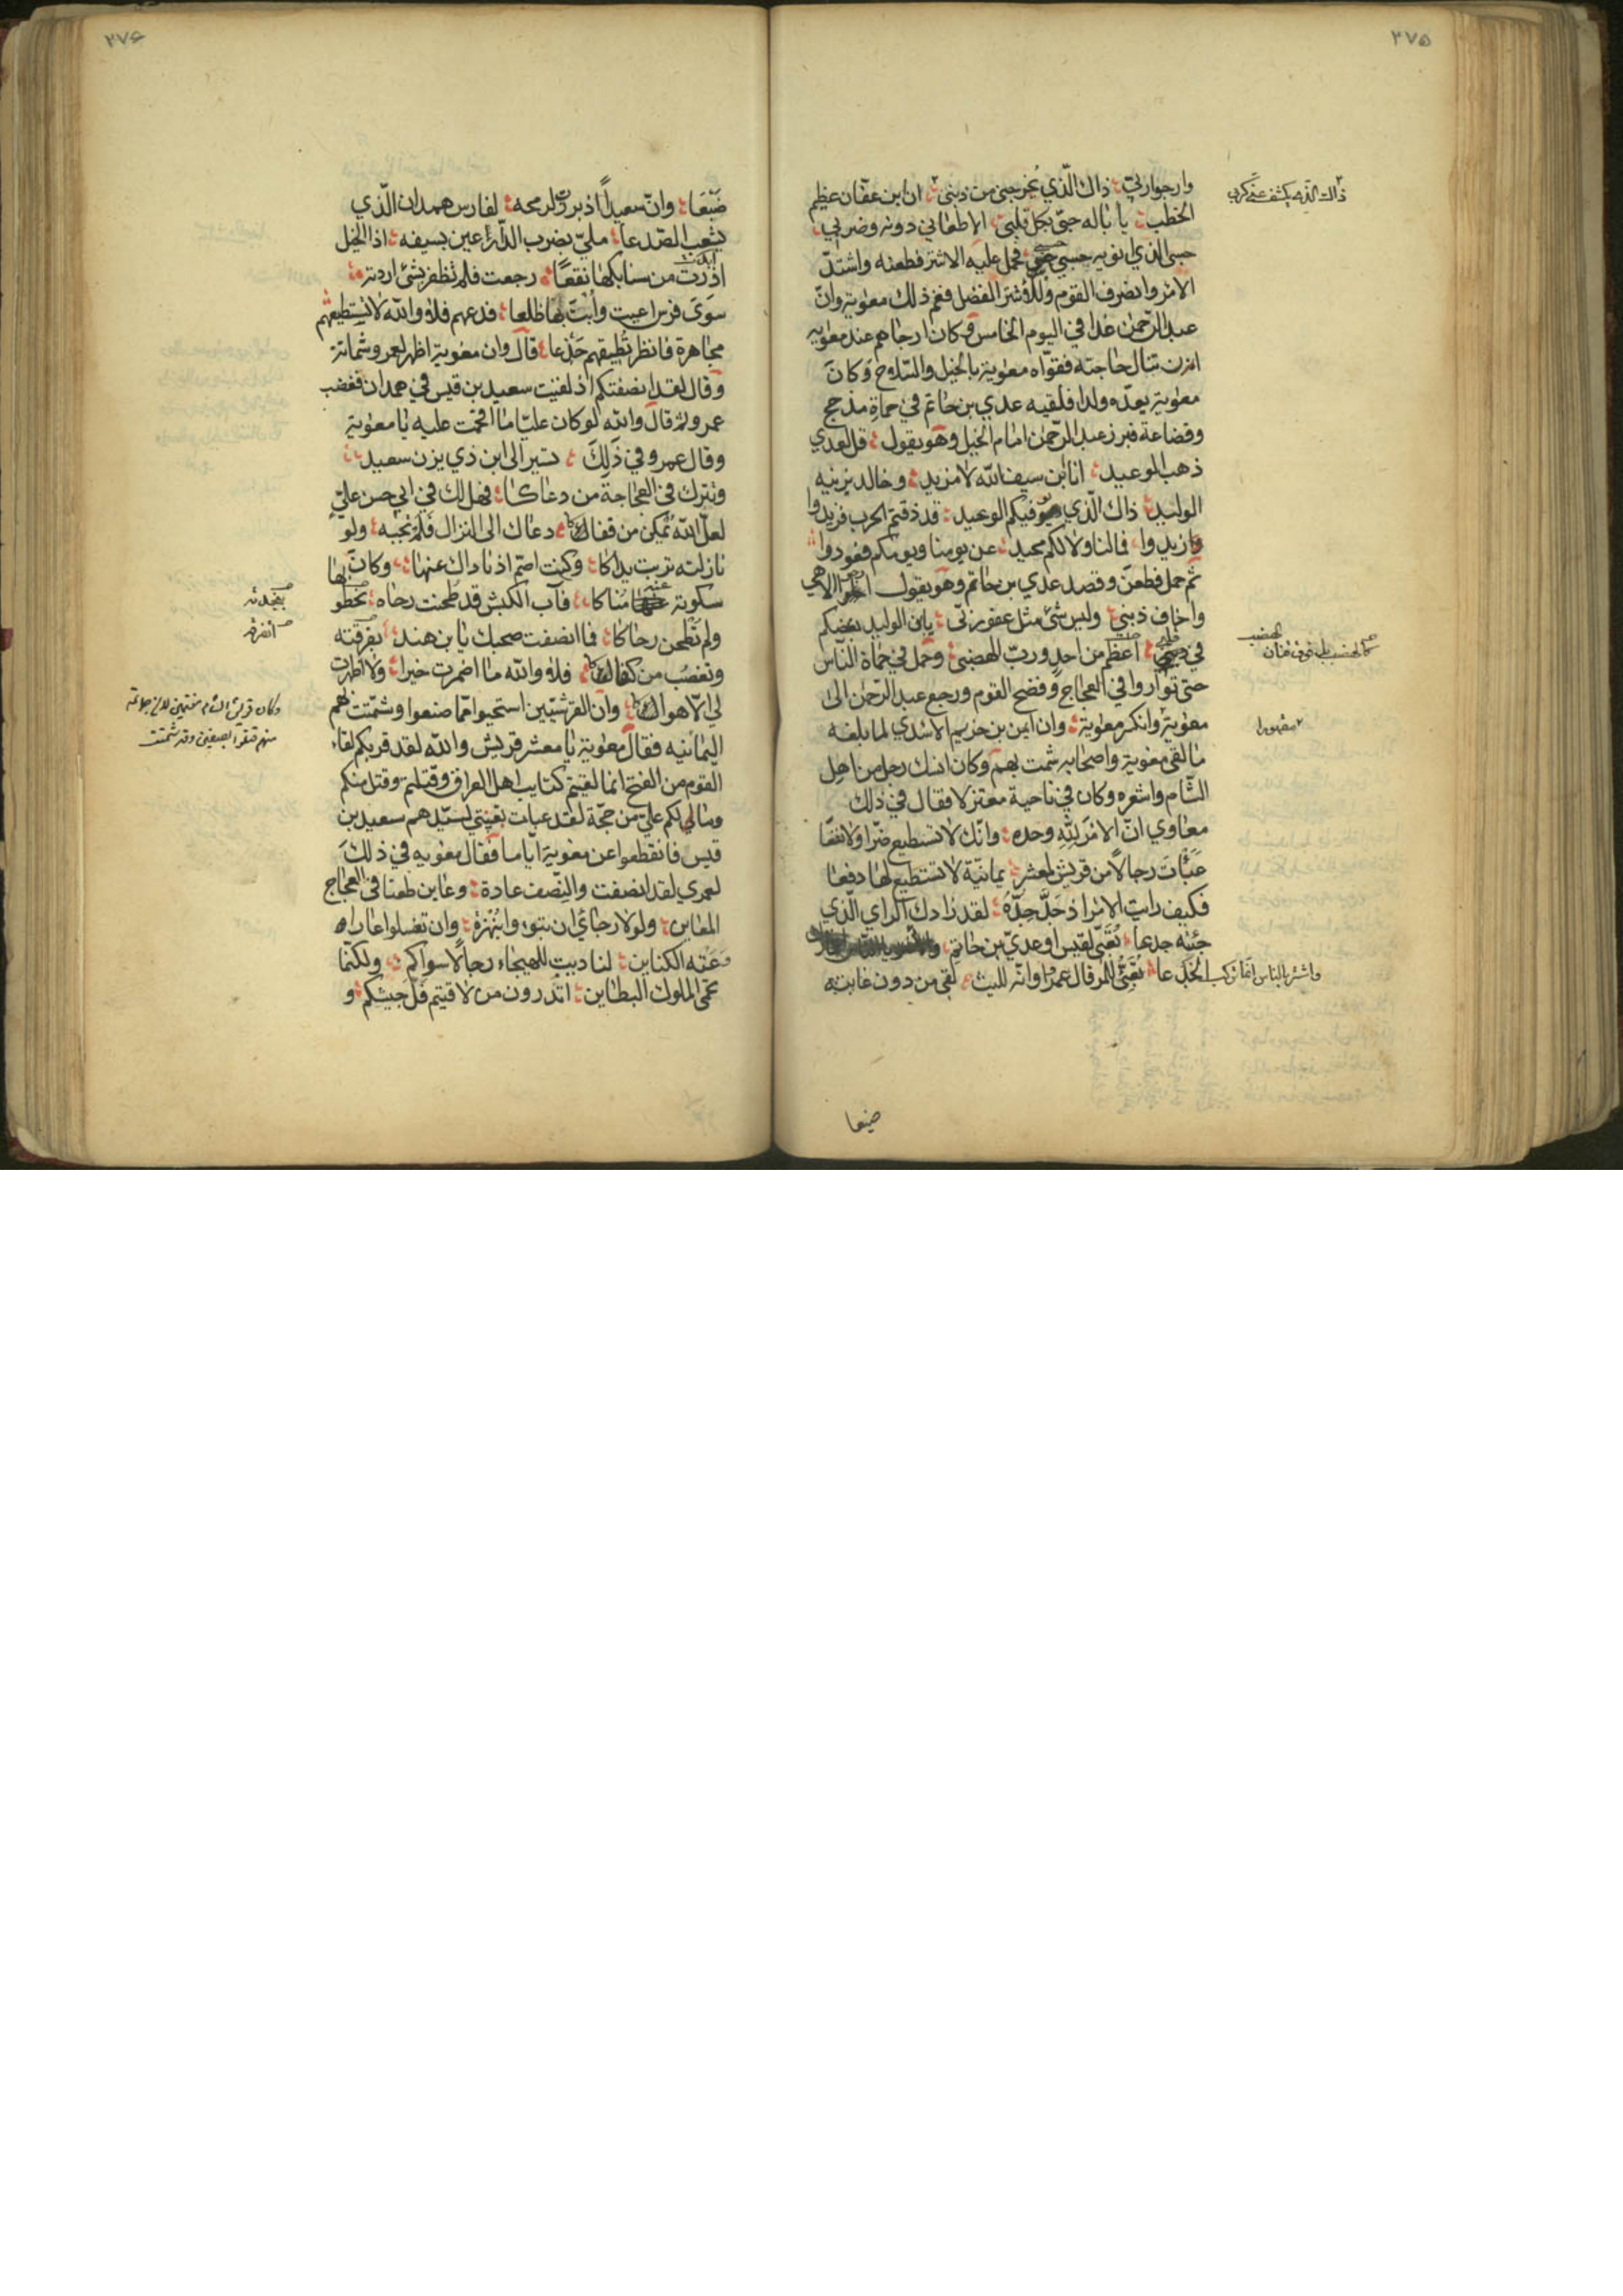 ٣٧٥
وارجوا ربّي ؛ ذاك الّذي يُخرجني من ذنبي ؛ انّ ابن عفّان عظيم
الخطب ؛ يا باله حتى بكل قلبي ؛ الا طعاني دونه وضربي ؛
حسبي الذي انويه حسبي حسبي ؛ فحمل عليه الاشتر فطعنه واشتدّ
الامر وانصرف القوم وللأشتر الفضل فغم ذلك معوية وانّ
عبد الرّحمن غدا في اليوم الخامس وكان ارجاهم عند معوية
ان تنال حاجته فقوّاه معوية بالخيل والسّلاح وكان
معوية يعدّه ولدا فلقيه عدي بن حاتم في حماة مذحج
وقضاعة فبرز عبد الرّحمن امام الخيل وهو يقول ؛ قل لعدي
ذهب الوعيد ؛ انا ابن سيف الله لا مزيد ؛ وخالد يزينه
الوليد ؛ ذاك الّذي هو فيكم الوعيد ؛ قد ذقتم الحرب فزيدوا
وازيدوا ؛ فما لنا ولا لكم محيد ؛ عن يومنا ويومكم فعودوا ؛
ثم حمل فطعن وقصد عدي بن حاتم وهو يقول ارجو الاهي
واخاف ذنبي ؛ وليس شئ مثل عفو ربّي ؛ يابن الوليد بغضكم
في قلبي ؛ اعظم من احد وربّ الهضبي ؛ وحمل في حماة النّاس
حتى تواروا في العجاج وفضح القوم ورجع عبد الرّحمن الى
معوية وانكسر معوية ؛ وان ايمن بن خزيم الاسدي لما بلغه
ما لقى معوية واصحابه شمت بهم وكان انسك رجل من اهل
الشّام واشعره وكان في ناحية معتزلا فقال في ذلك
معاوي انّ الامر للّه وحده ؛ وانّك لا تستطيع ضرّا ولا نفعا
عَبَّأتَ رجالا من قريش لمعشر ؛ يمانيّة لا تستطيع لها دفعا
فكيف رايت الامر اذ جدّ جدّه ؛ لقد زادك الراي الّذي
جئته جدعا ؛ تُعَبّي لقيس او عديّ بن حاتم ؛
الجدعا ؛ تُعَبّي للمرقال عمرا وانّه لليث ؛ لقى من دون غايته
ذاك الذي يكشف عنّي كربي
كالهضب فوق قنان الهضب
مقهورا
واشتر بالناس
ضبعا
٣٧٦
ضَبْعَا ؛ وانّ سعيدا اذ برزت لرمحه ؛ لفارس همدان الّذي
يشعب الصّدعا ؛ مليّ بضرب الدّارعين بسيفه ؛ اذا الخيل
ابدت من سنابكها نقعا ؛ رجعت فلم تظفر بشئ اردته ؛
سوى فرس اعيت وأبت بها ظلعا ؛ فدعهم فلا والله لا تستطيعهم
مجاهرة فانظر تُطيقهم خَدعا ؛ قال وان معوية اظهر لعمرو شماتة
وقال لقد انصفتكم اذ لقيت سعيد بن قيس في همدان فغضب
عمرو ثم قال والله لو كان عليّا ما اقحمت عليه يا معوية
وقال عمرو في ذَلِكَ ؛ تسير الى ابن ذي يزن سعيد ؛
وتترك في العجاجة من دعاكا ؛ فهل لك في ابي حسن عليّ
لعلّ الله يُمكن من قفاكا ؛ دعاك الى النزال فلم تجبه ؛ ولو
نازلته تربت يداكا ؛ وكنت اصمّ اذ ناداك عنها ؛ وكان
سكوته عنها مُناكا ؛ فآب الكبش قد طحنت رحاه ؛ بخطو
ولم تطحن رحاكا ؛ فما انصفت صحبك يا بن هند ؛ بفرقته
وتغضب من كفاكا ؛ فلا والله ما اضمرت خيرا ؛ ولا اظهرت
لي الّا هواكا ؛ وان القرشيّين استحيوا ممّا صنعوا وشمّتت بهم
اليمانيه فقال معوية يا معشر قريش والله لقد قربكم لقاء
القوم من الفتح انما لقيتم كتايب اهل العراق وقتلتم وقتل منكم
وما لي لكم علي من حجّة لقد عبات تعبيتي لسيّدهم سعيد بن
قيس فانقطعوا عن معوية ايّاما فقال معويه في ذلكَ
لعمري لقد انصفت والنّصف عادة ؛ وعاين طعنا في العجاج
المعاين ؛ ولولا رجائي ان تبوءوا بنُهْزة ؛ وان تغسلوا عارا
وَعَته الكناين ؛ لناديت للهيجاء رجالا سواكم ؛ ولكنّما
تحمّى الملوك البطاين ؛ اتدرون من لاقيتم فلّ جيشكم ؛ و
بنجدته
وكان قريش الشام
منهم بصفين وقد شمتت